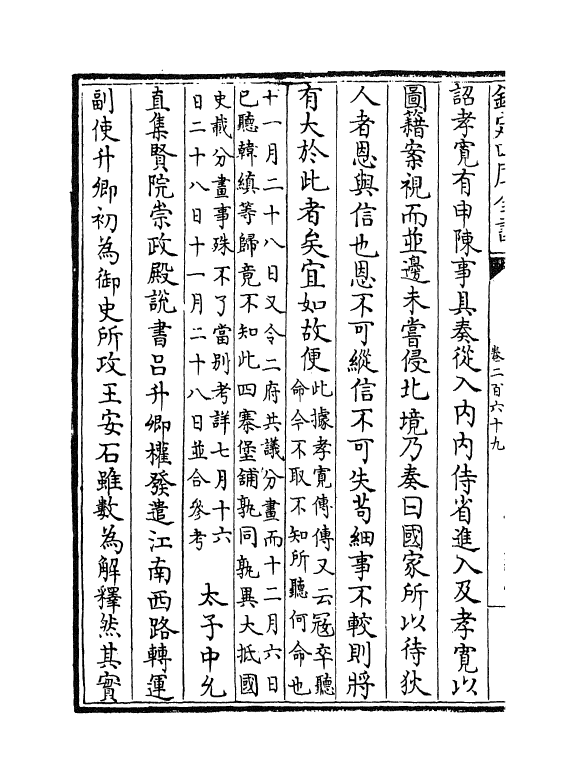 欽定四庫全書
卷二百六十九
詔孝寛有申陳事具奏從入内内侍省進入及孝寛以
圖籍案視而並邊未嘗侵北境乃奏曰國家所以待狄
人者恩與信也恩不可縱信不可失茍細事不較則將
有大於此者矣宜如故便此據孝寛傳傳又云冦卒聽
命今不取不知所聽何命也
十一月二十八日又令二府共議分畫而十二月六日
已聽韓縝等歸竟不知此四寨堡鋪孰同孰異大抵國
史載分畫事殊不了當别考詳七月十六
日二十八日十一月二十八日並合參考
太子中允
直集賢院崇政殿說書吕升卿權發遣江南西路轉運
副使升卿初為御史所攻王安石雖數為解釋然其實